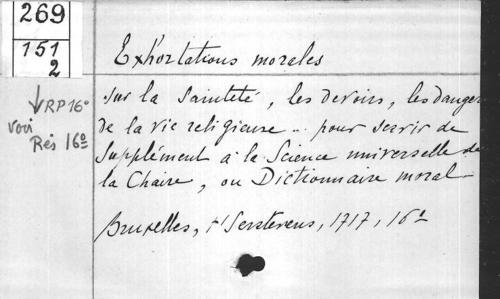 269
151
2
↓ RP 16°
voir
Rés 16°
Exhortations morales
sur la sainteté, les devoirs, les danger
de la vie religieuse .. pour servir de
supplément à la Science universelle de
la Chaire, ou Dictionnaire moral
Bruxelles, t'Serstevens, 1717, 16°